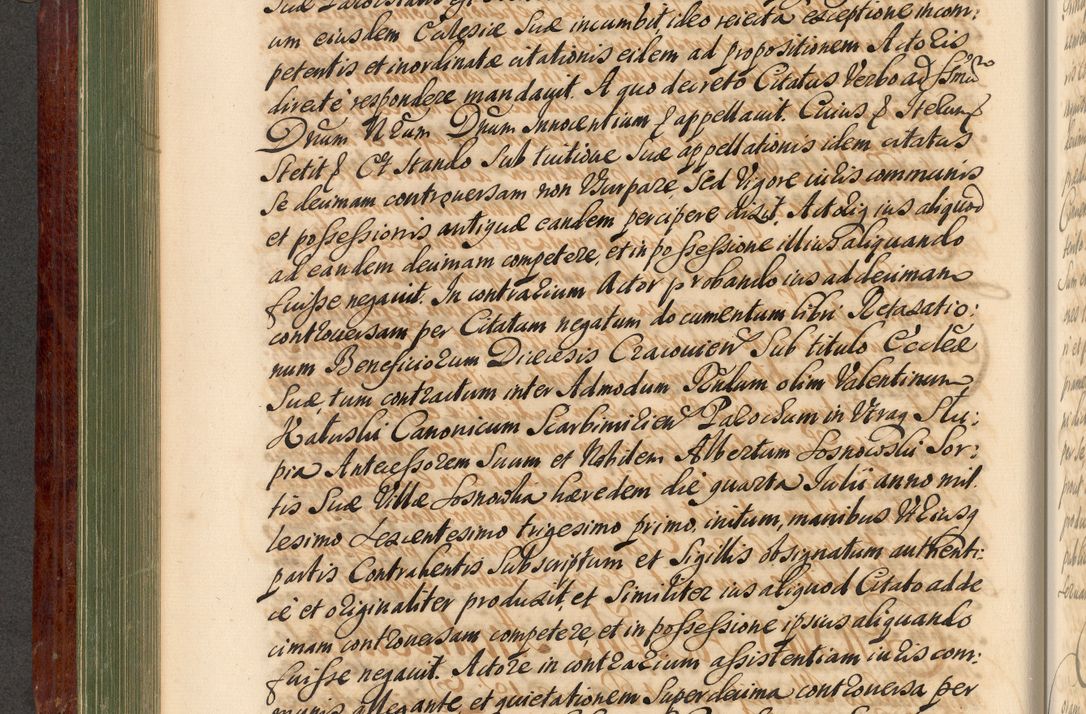 um eiusdem Ecclesiæ Suæ incumbit, ideo reiecta exceptione incom:
petentis et inordinatæ citationis eidem ad propositionem Actoris
directè respondere mandavit. A quo decreto Citatus Verbo ad Ssmũ
Dnum Nrum Dnum Innocentium & appellavit. Cuius & Iterum &
Stetit & Et Stando Sub tuitione Suæ appellationis idem citatus
Se decimam controversam non Usurpare, Sed Vigore iuris communis
et possessionis antiquæ eandem percipere dixit. Actoriq ius aliquod
ad eandem decimam competere, et in possessione illius aliquando
fuisse negavit. In contrarium Actor probando ius ad decimam
controversam per Citatum negatum documentum libri Retaxatio:
num Beneficiorum Diœcesis Cracovien Sub titulo Ecclæ
Suæ, tum contractum inter Admodum Rndum olim Valentinum
Katuski Canonicum Scarbimirien Parochum in Utraq Stu:
pia Antecessorem Suum et Nobilem Albertum Sosnowski Sor:
tis Suæ Villæ Sosnowka hæredem die quarta Julii anno mil:
lesimo Sexcentesimo trigesimo primo, initum, manibus Utriusq
partis Contrahentis Subscriptum et Sigillis obsignatum authenti:
cè et originaliter produxit, et Similiter ius aliquod Citato ad de
cimam controversam competere, et in possessione ipsius aliquando
fuisse negavit. Actore in contrarium assistentiam iuris com:
munis allegante et quietationem Super decima controversa per